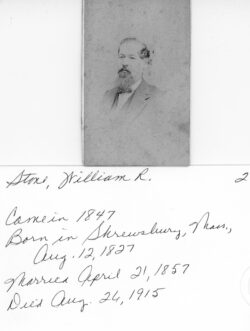 Stone, William R.
2
Came in 1847
Born in Shrewsbury, Mass.,
Aug. 12, 1827
Married April 21, 1857
Died Aug. 24, 1915